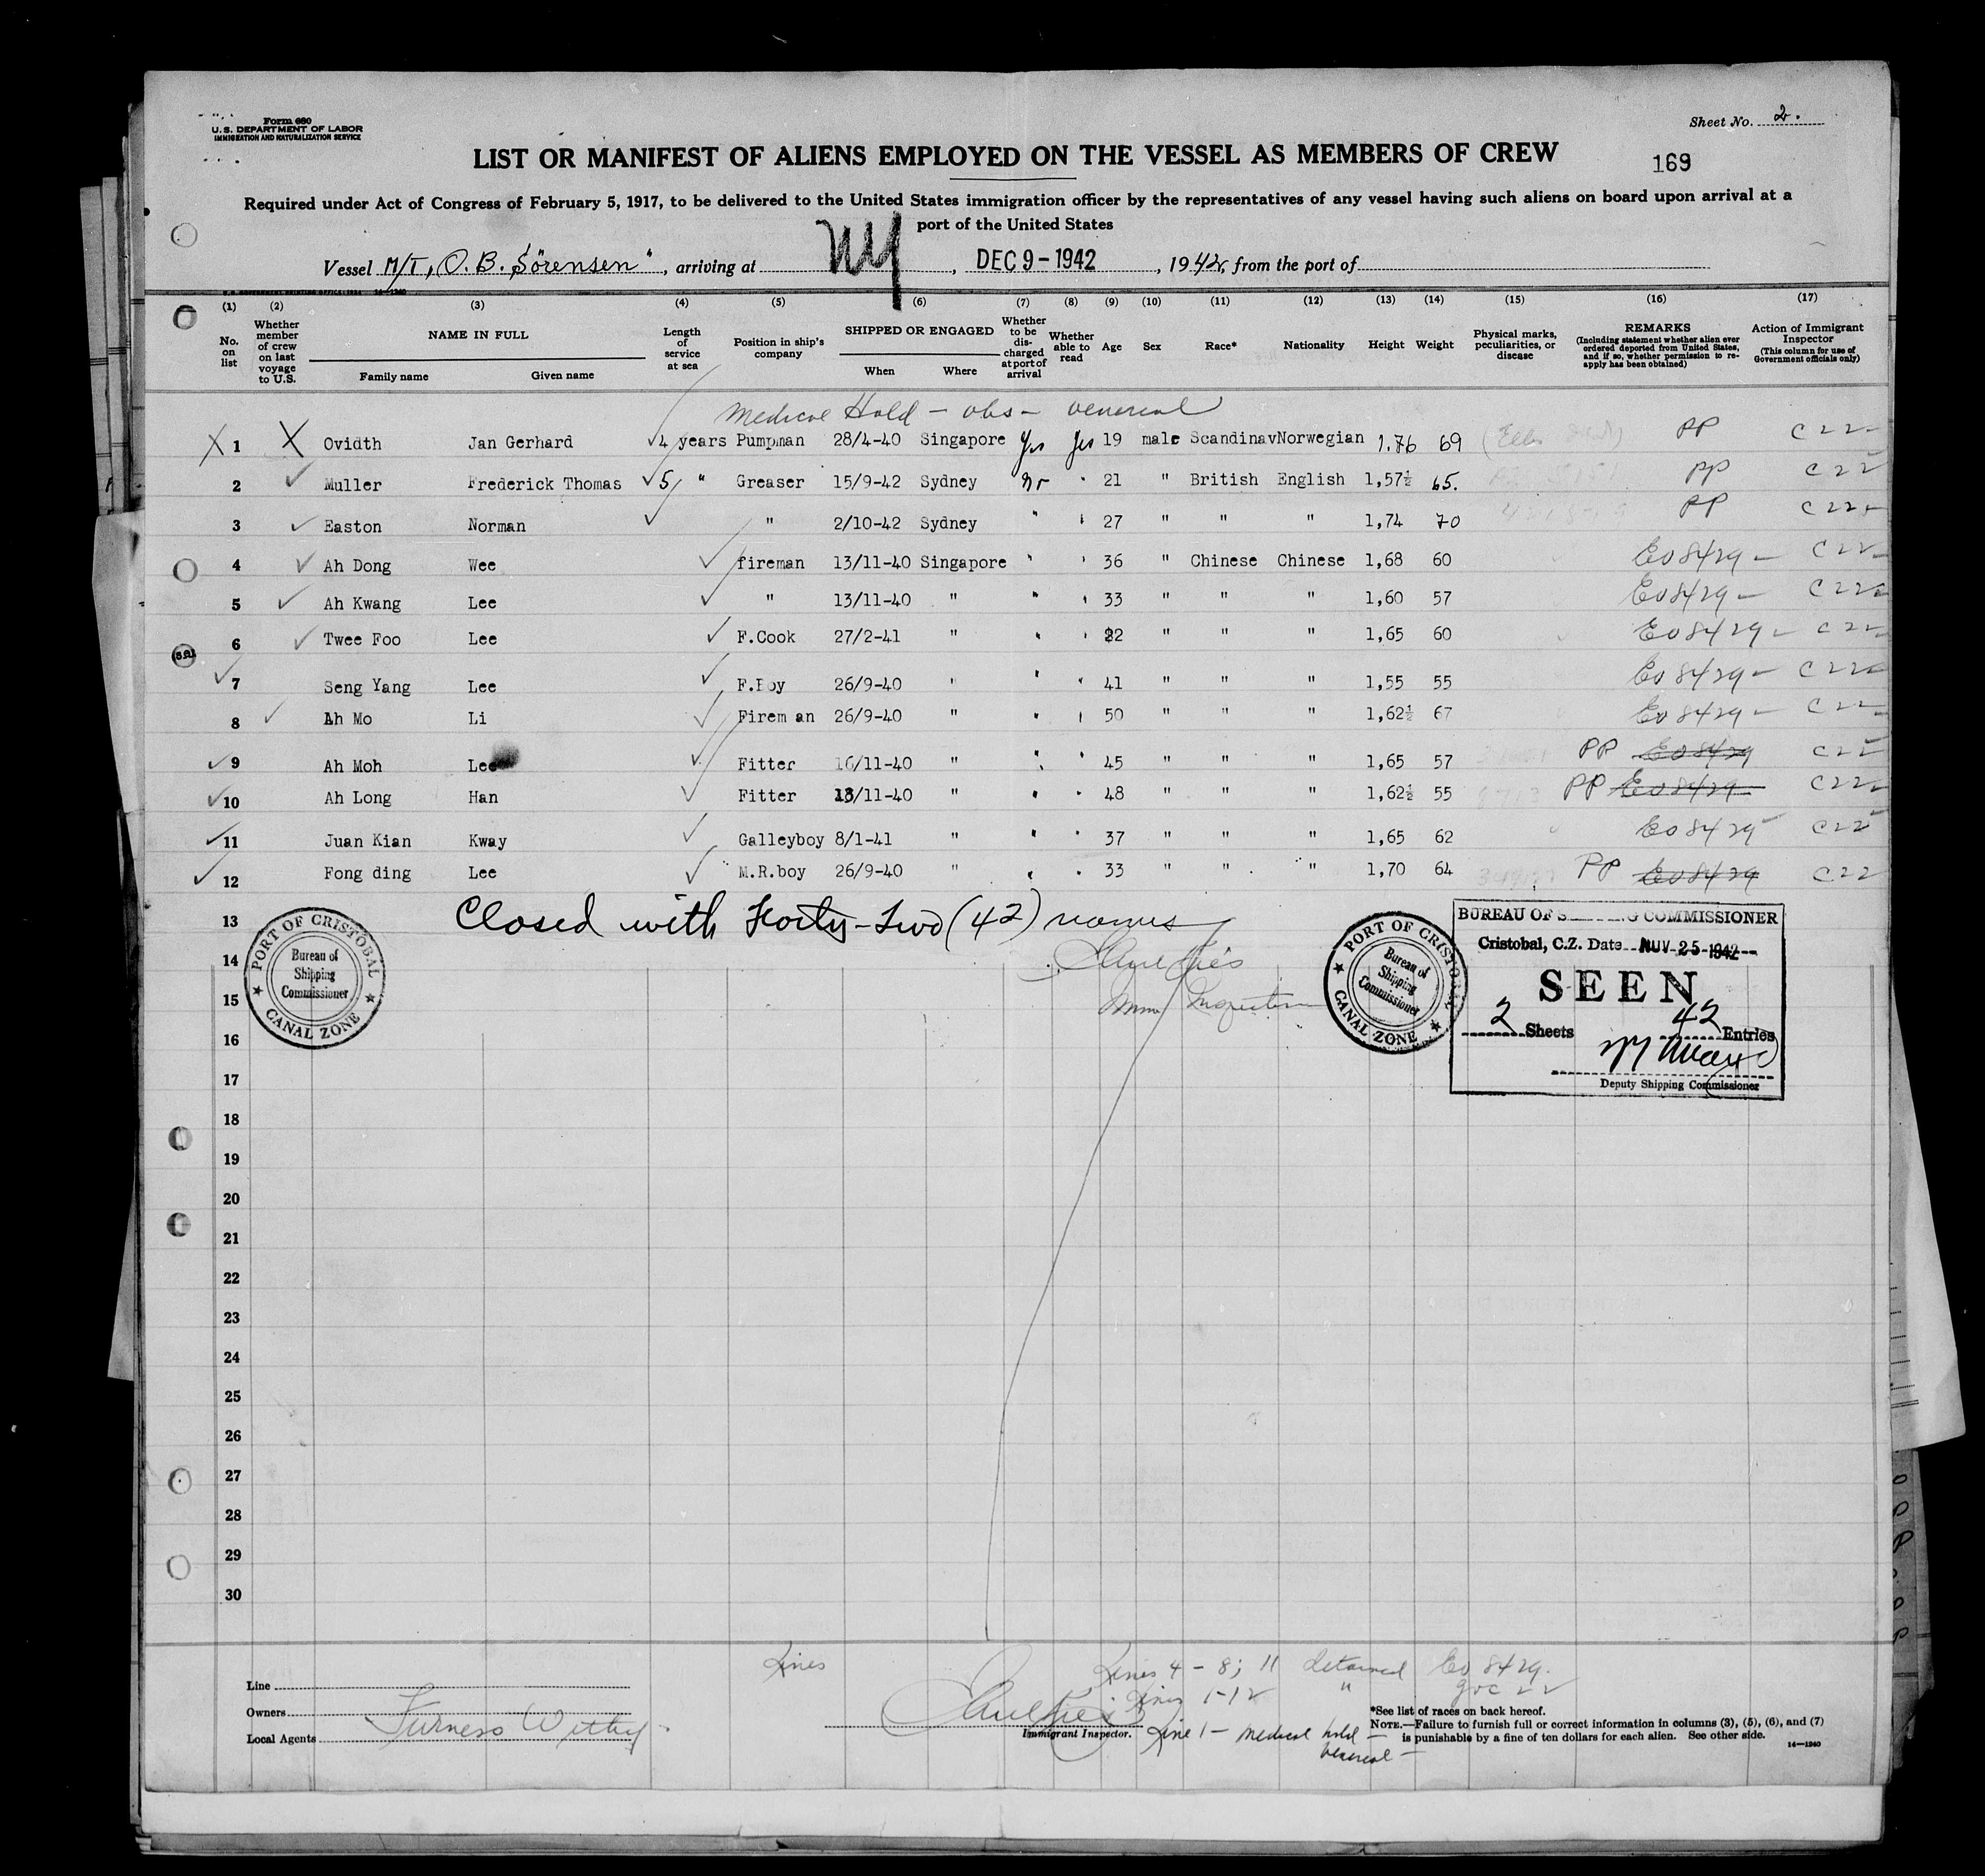 Form 680
U. S. DEPARTMENT OF LABOR
IMMIGRATION AND NATURALIZATION SERVICE
Sheet No. 2.
LIST OR MANIFEST OF ALIENS EMPLOYED ON THE VESSEL AS MEMBERS OF CREW
169
Required under Act of Congress of February 5, 1917, to be delivered to the United States immigration officer by the representatives of any vessel having such aliens on board upon arrival at a
port of the United States
Vessel M/T, O. B. Sörensen", arriving at NY, DEC 9 - 1942, 1942, from the port of
(1) (2) (3) (4) (5) (6) (7) (8) (9) (10) (11) (12) (13) (14) (15) (16) (17)
No. on list
Whether member of crew on last voyage to U.S.
NAME IN FULL
Family name Given name
Length of service at sea
Position in ship's company
SHIPPED OR ENGAGED
When Where
Whether to be discharged at port of arrival
Whether able to read
Age Sex Race* Nationality Height Weight
Physical marks, peculiarities, or disease
REMARKS
(Including statement whether alien ever ordered deported from United States, and if so, whether permission to reapply has been obtained)
Action of Immigrant Inspector
(This column for use of Government officials only)
Medical Hold - obs - venereal
1 X Ovidth Jan Gerhard 4 years Pumpman 28/4-40 Singapore Yes Yes 19 male Scandinav Norwegian 1.76 69 PP C22
2 Muller Frederick Thomas 5 " Greaser 15/9-42 Sydney No " 21 " British English 1,57½ 65. PP C22
3 Easton Norman " 2/10-42 Sydney " " 27 " " " 1,74 70 PP C22
4 Ah Dong Wee fireman 13/11-40 Singapore " " 36 " Chinese Chinese 1,68 60 Eo 8429 - C22
5 Ah Kwang Lee " 13/11-40 " " " 33 " " " 1,60 57 Eo 8429 - C22
6 Twee Foo Lee F.Cook 27/2-41 " " " 22 " " " 1,65 60 Eo 8429 - C22
7 Seng Yang Lee F.Boy 26/9-40 " " " 41 " " " 1,55 55 Eo 8429 - C22
8 Ah Mo Li Fireman 26/9-40 " " " 50 " " " 1,62½ 67 Eo 8429 - C22
9 Ah Moh Lee Fitter 16/11-40 " " " 45 " " " 1,65 57 PP Eo 8429 C22
10 Ah Long Han Fitter 13/11-40 " " " 48 " " " 1,62½ 55 PP Eo 8429 C22
11 Juan Kian Kway Galleyboy 8/1-41 " " " 37 " " " 1,65 62 Eo 8429 C22
12 Fong ding Lee M.R.boy 26/9-40 " " " 33 " " " 1,70 64 PP Eo 8429 C22
13 Closed with Forty-Two (42) names
14
15
16
17
18
19
20
21
22
23
24
25
26
27
28
29
30
PORT OF CRISTOBAL
Bureau of
Shipping
Commissioner
CANAL ZONE
Imm Inspector
PORT OF CRISTOBAL
Bureau of
Shipping
Commissioner
CANAL ZONE
BUREAU OF S G COMMISSIONER
Cristobal, C.Z. Date NOV 25 1942
SEEN
2 Sheets 42 Entries
Deputy Shipping Commissioner
Lines
Lines 4 - 8; 11 Detained Eo 8429.
Lines 1-12 "
Line
Owners
Local Agents Furness Withy
Immigrant Inspector.
Line 1 - medical hold -
venereal -
*See list of races on back hereof.
NOTE.—Failure to furnish full or correct information in columns (3), (5), (6), and (7)
is punishable by a fine of ten dollars for each alien. See other side.
14—1240